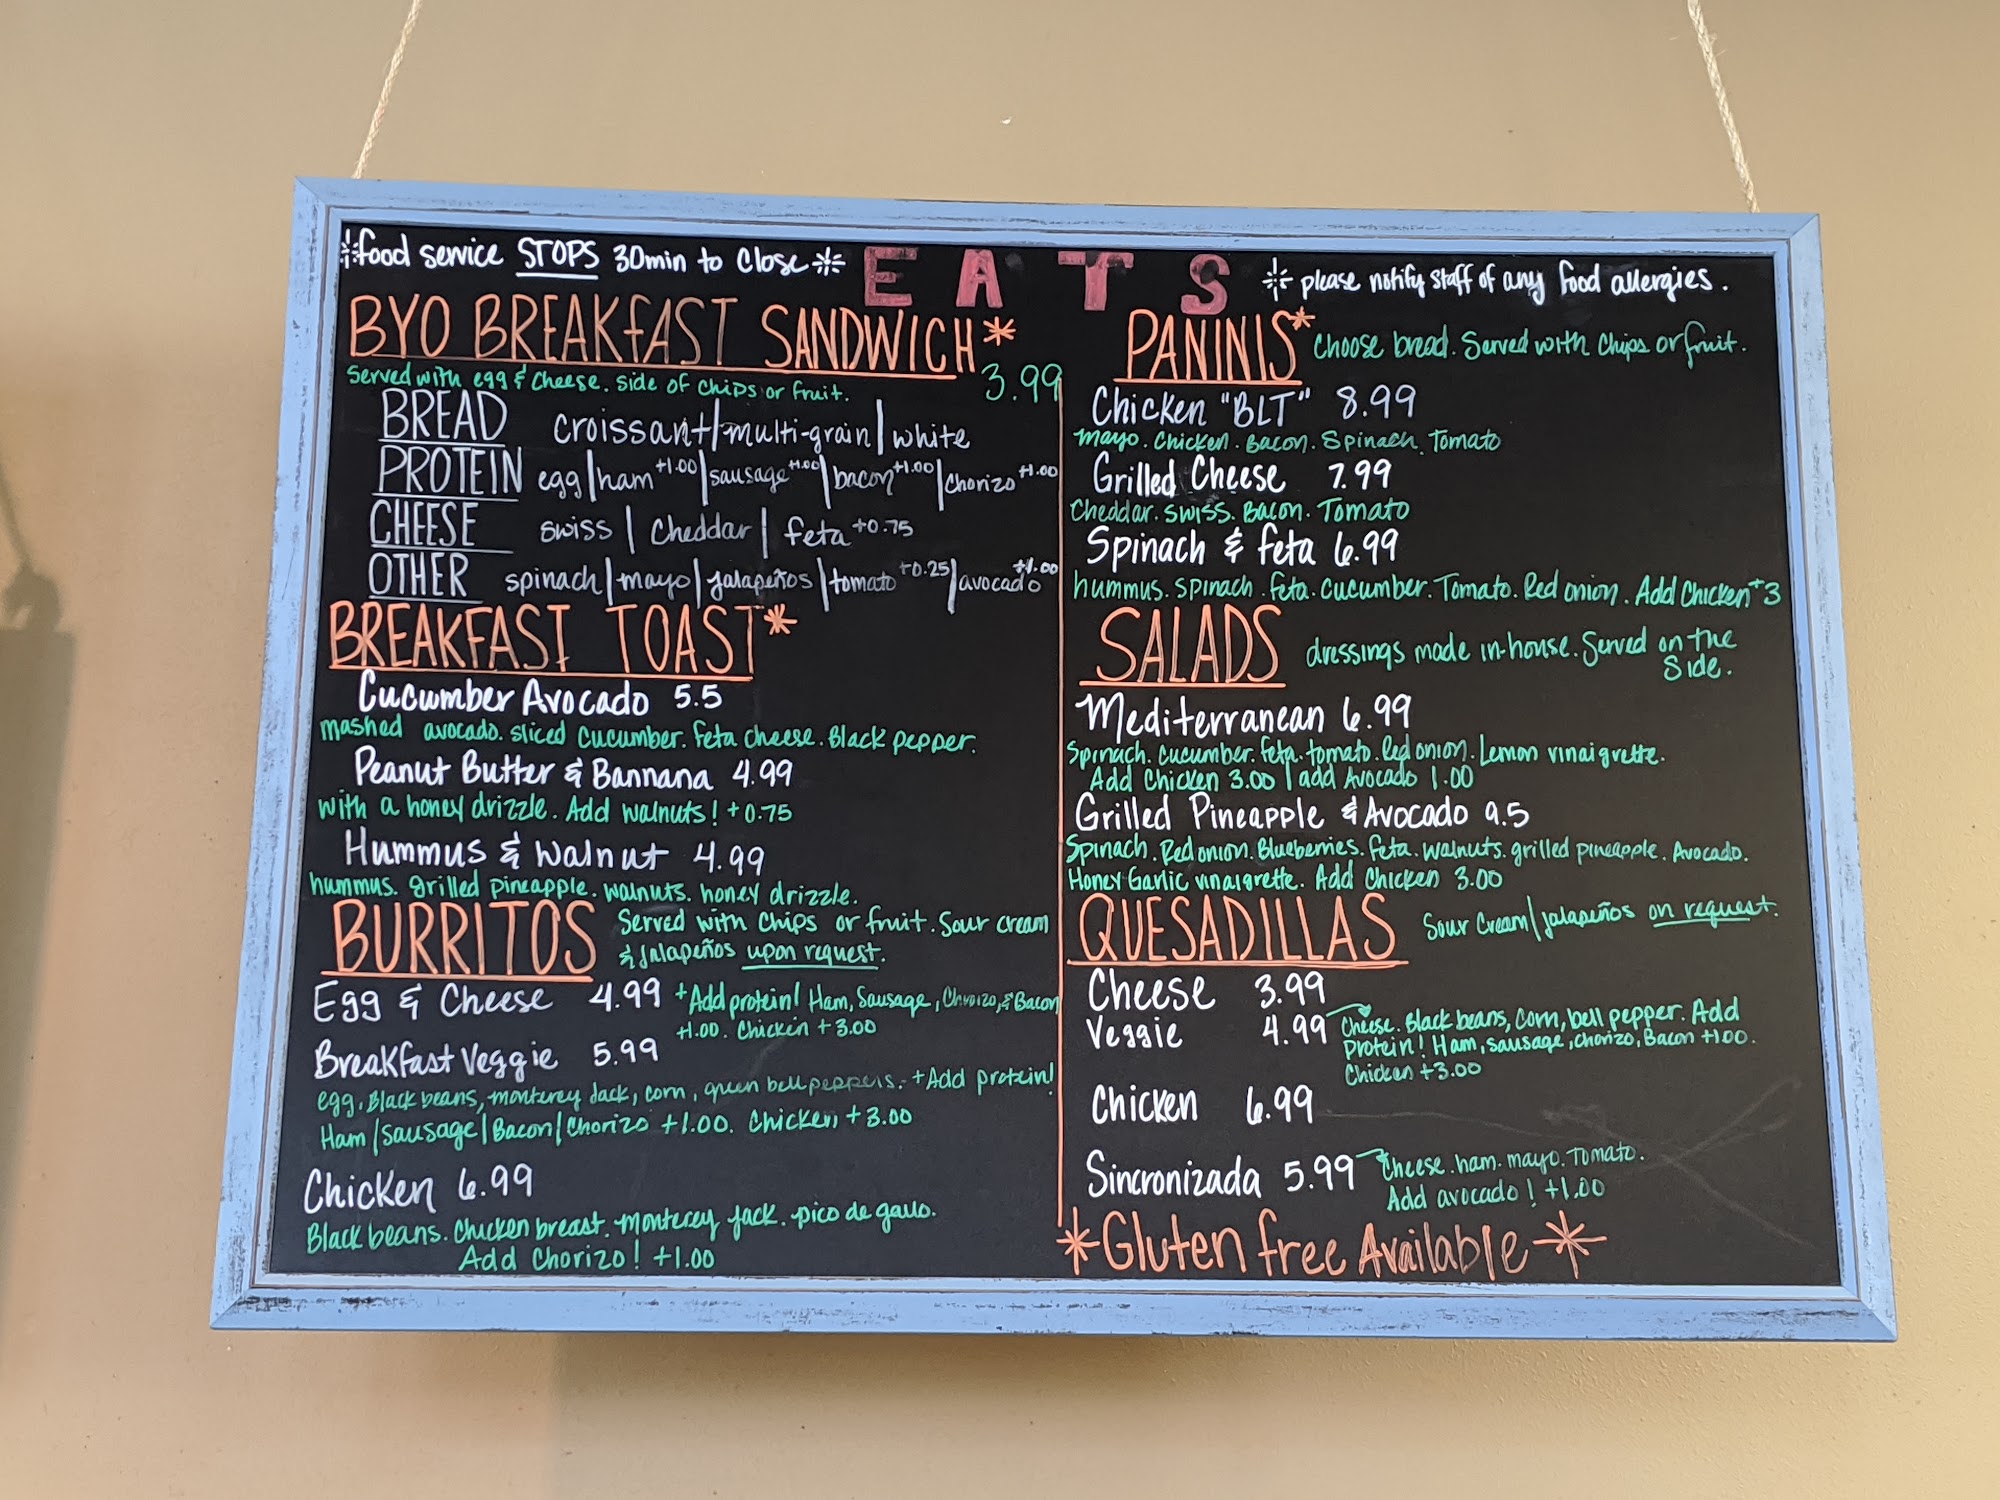 food service STOPS 30min to close
EATS
please notify staff of any food allergies.
BYO BREAKFAST SANDWICH*
Served with egg & cheese. side of chips or fruit. 3.99
BREAD croissant | multi-grain | white
PROTEIN egg | ham +1.00 | sausage +1.00 | bacon +1.00 | chorizo +1.00
CHEESE swiss | cheddar | feta +0.75
OTHER spinach | mayo | jalapeños | tomato +0.25 | avocado +1.00
BREAKFAST TOAST*
Cucumber Avocado 5.5
mashed avocado. sliced cucumber. feta cheese. Black pepper.
Peanut Butter & Bannana 4.99
with a honey drizzle. Add walnuts! +0.75
Hummus & Walnut 4.99
hummus. grilled pineapple. walnuts. honey drizzle.
BURRITOS Served with chips or fruit. Sour cream
& jalapeños upon request.
Egg & Cheese 4.99 + Add protein! Ham, Sausage, Chorizo, & Bacon
+1.00. Chicken +3.00
Breakfast Veggie 5.99
egg, Black beans, monterey Jack, corn, green bell peppers. + Add protein!
Ham | Sausage | Bacon | Chorizo +1.00. Chicken +3.00
Chicken 6.99
Black beans. Chicken breast. monterey jack. pico de gallo.
Add Chorizo! +1.00
PANINIS* Choose bread. Served with chips or fruit.
Chicken "BLT" 8.99
mayo. Chicken. Bacon. Spinach. Tomato
Grilled Cheese 7.99
Cheddar. Swiss. Bacon. Tomato
Spinach & Feta 6.99
hummus. Spinach. feta. cucumber. Tomato. Red onion. Add Chicken +3
SALADS dressings made in-house. Served on the
Side.
Mediterranean 6.99
Spinach. cucumber. feta. tomato. Red onion. Lemon vinaigrette.
Add Chicken 3.00 | add Avocado 1.00
Grilled Pineapple & Avocado 9.5
Spinach. Red onion. Blueberries. feta. walnuts. grilled pineapple. Avocado.
Honey Garlic vinaigrette. Add Chicken 3.00
QUESADILLAS Sour Cream | jalapeños on request.
Cheese 3.99
Veggie 4.99 Cheese. Black beans, corn, bell pepper. Add
Protein! Ham, sausage, chorizo, Bacon +1.00.
Chicken +3.00
Chicken 6.99
Sincronizada 5.99 Cheese. ham. mayo. Tomato.
Add avocado! +1.00
*Gluten free Available*